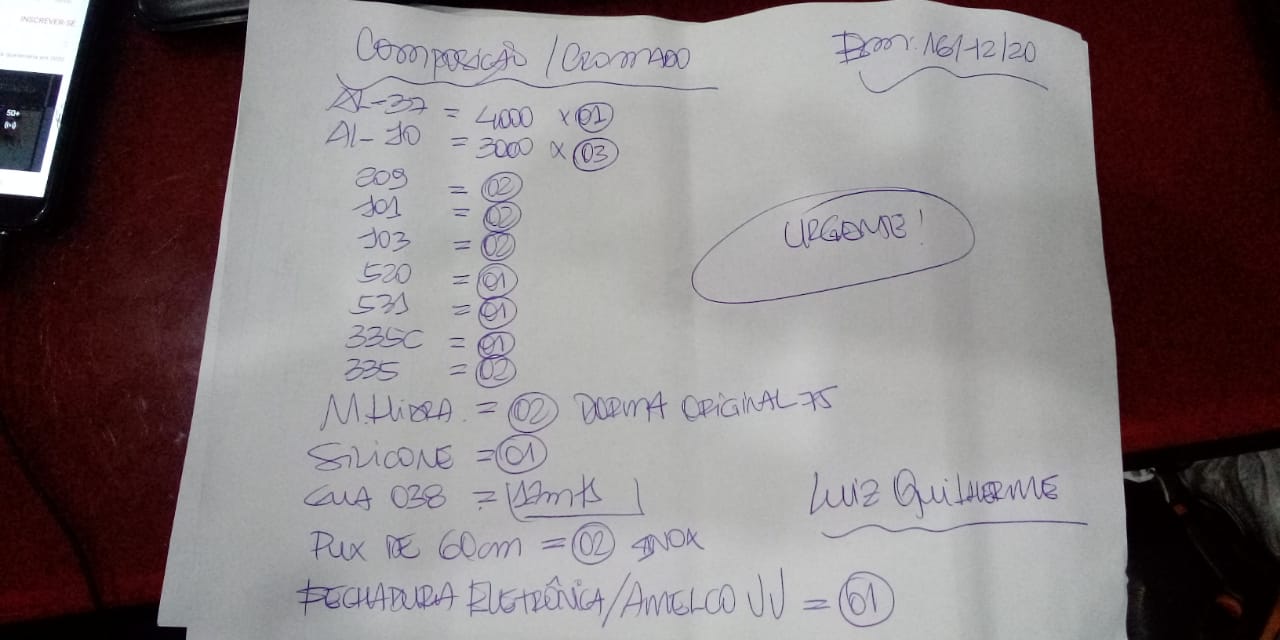 INSCREVER-SE
50+
COMPOSIÇÃO / CROMADO
16/12/20
AL-37 = 4000 x 01
AL-10 = 3000 x 03
209 = 02
101 = 02
103 = 02
520 = 01
531 = 01
335C = 01
335 = 02
URGENTE!
M. HIDRA. = 02 DORMA ORIGINAL-75
SILICONE = 01
GUIA 038 = 12mts
PUX DE 60cm = 02 INOX
LUIZ GUILHERME
FECHADURA ELETRÔNICA/AMELCO VV = 01